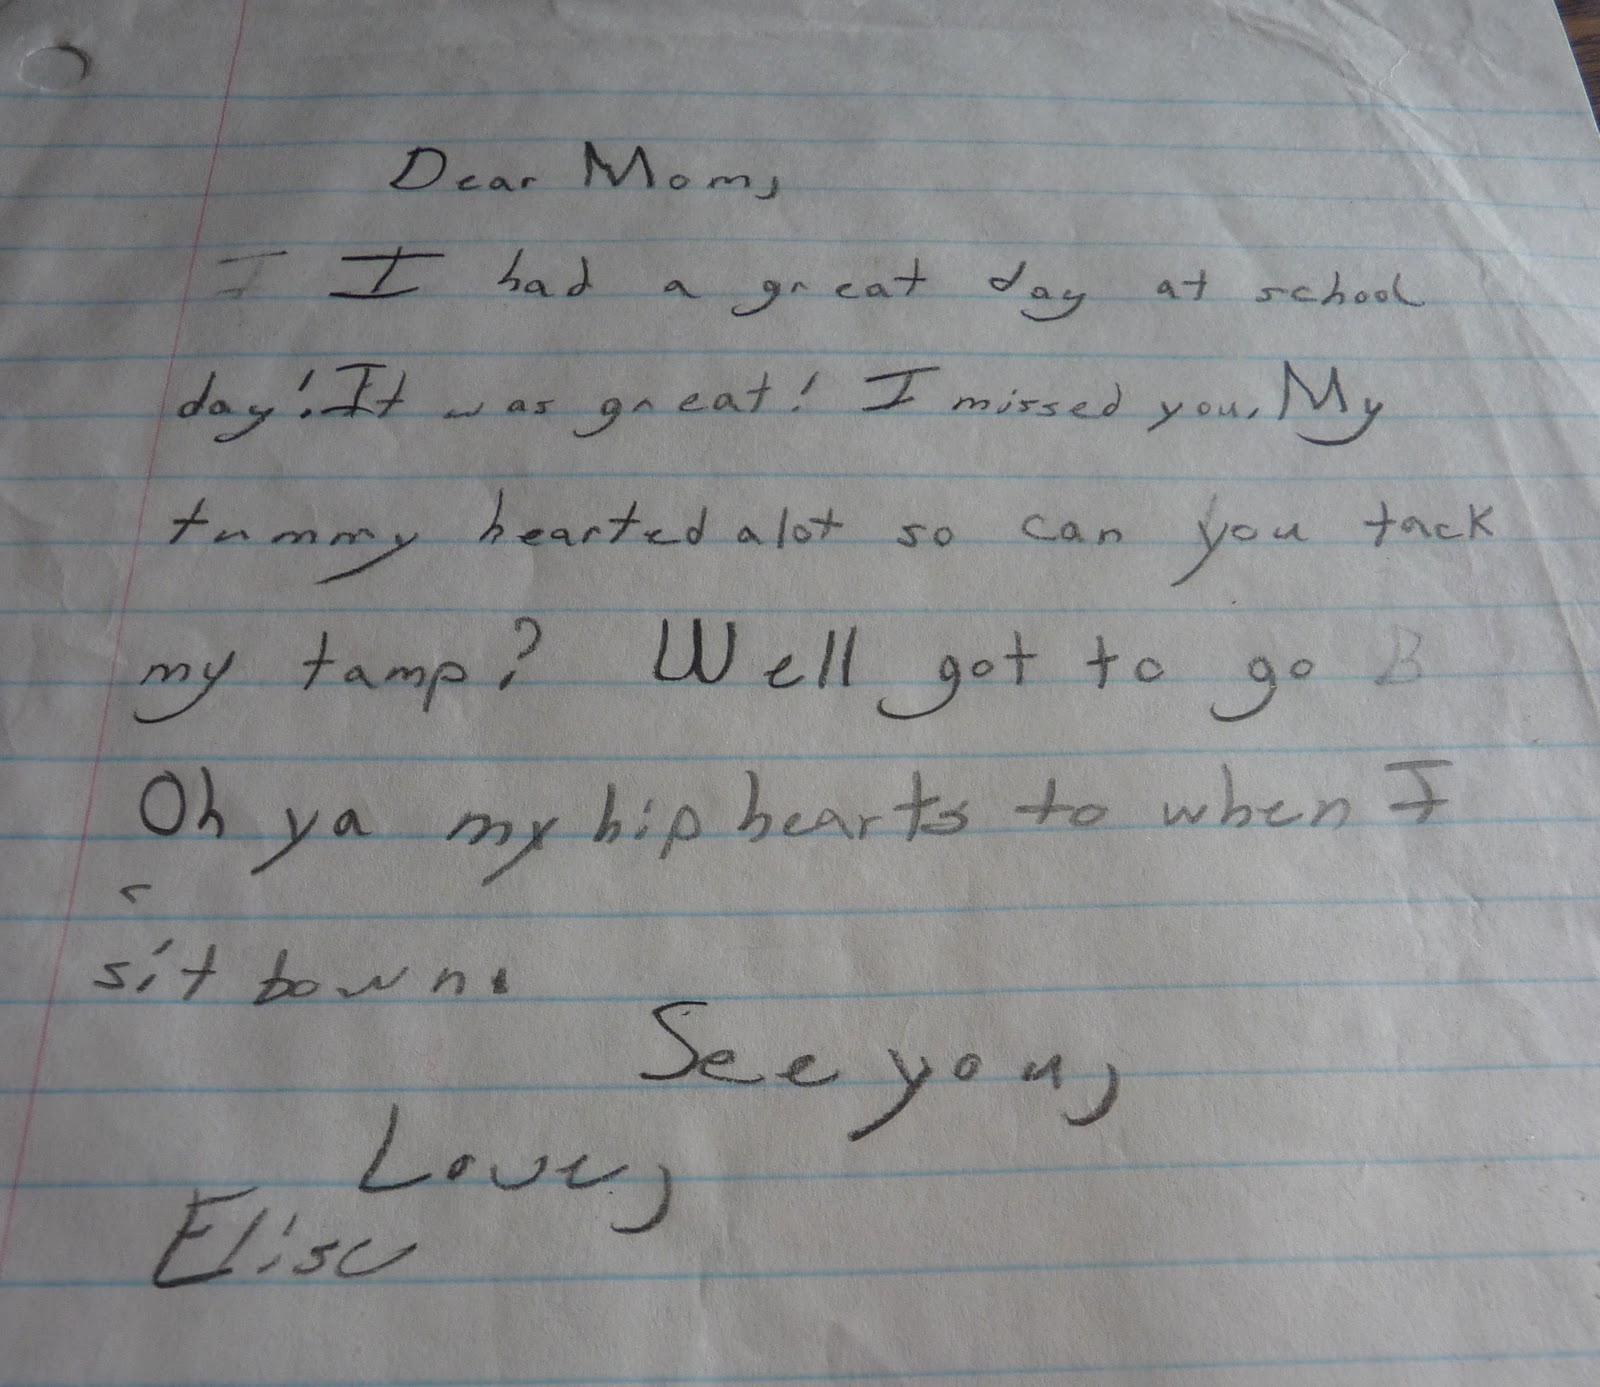 Dear Mom,
I I had a great day at school
day! It was great! I missed you. My
tummy hearted alot so can you tack
my tamp? Well got to go B
Oh ya my hip hearts to when I
s
sit bown.
See you,
Love,
Elise